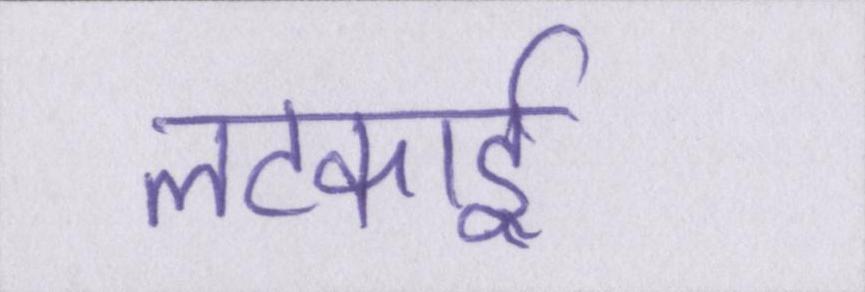 लटकाई